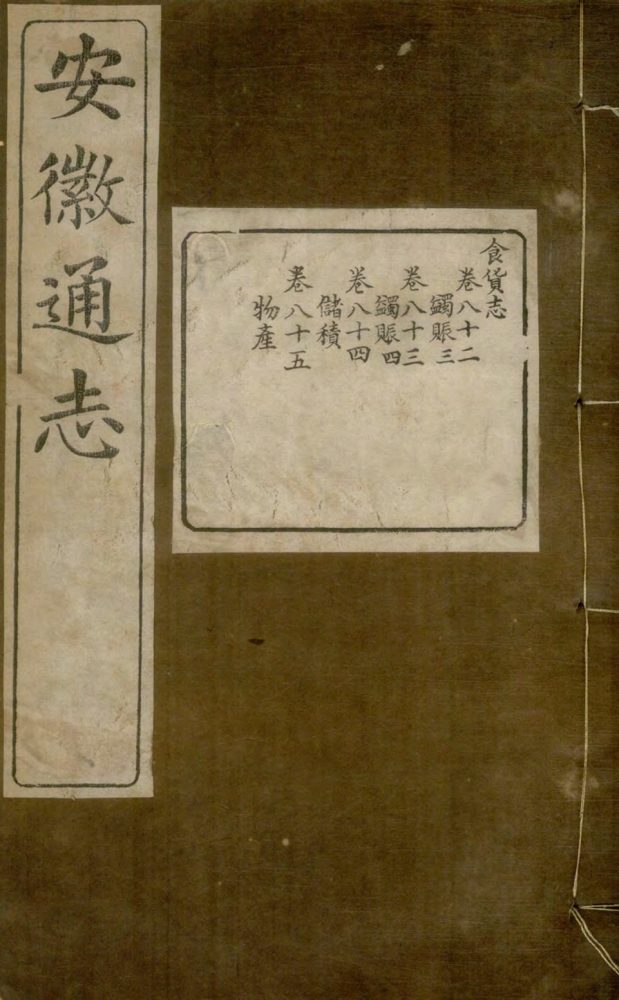 安徽通志
食貨志
卷八十二
蠲賑三
卷八十三
蠲賑四
卷八十四
儲積
卷八十五
物產